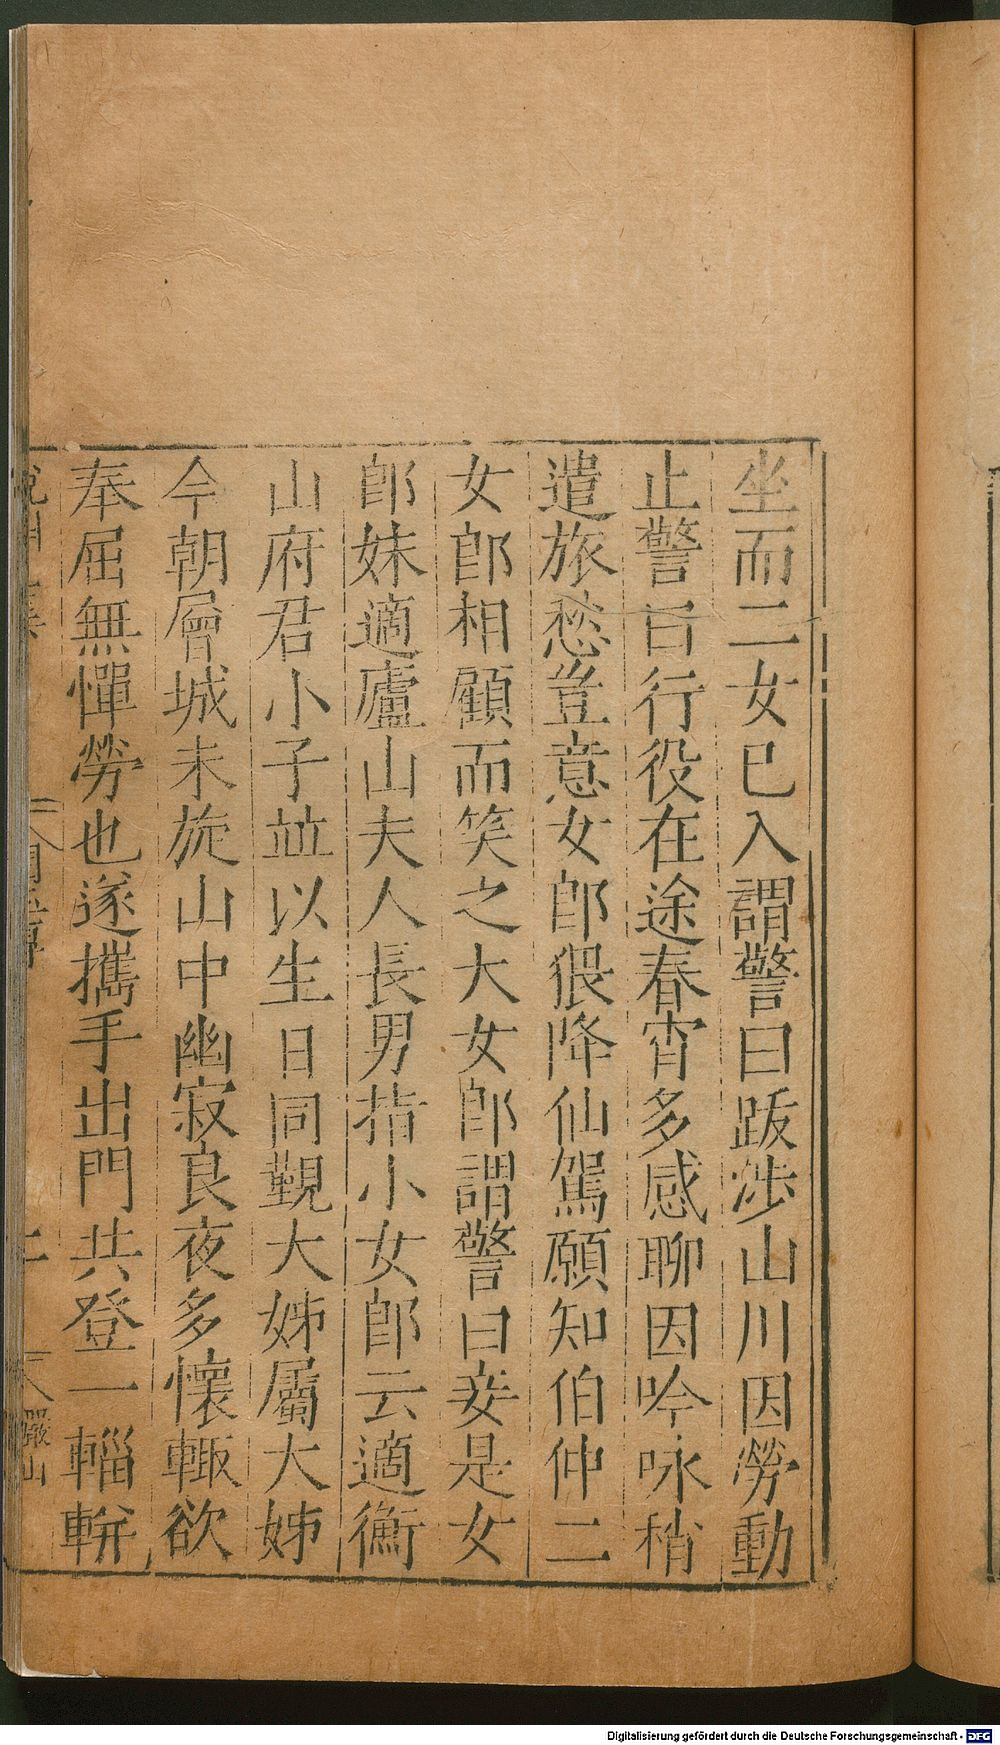 坐而二女已入謂警曰跋涉山川因勞動
止警曰行役在途春宵多感聊因吟咏稍
遣旅愁豈意女郎猥降仙駕願知伯仲二
女郎相顧而笑之大女郎謂警曰妾是女
郎妹適廬山夫人長男指小女郎云適衡
山府君小子竝以生日同覲大姊屬大姊
今朝層城未旋山中幽寂良夜多懷輙欲
奉屈無憚勞也遂攜手出門共登一輜軿
Digitalisierung gefördert durch die Deutsche Forschungsgemeinschaft - DFG